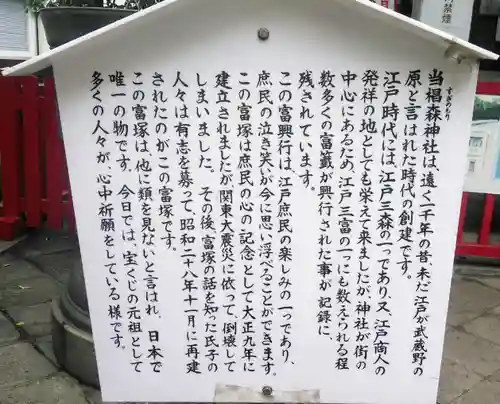 禁煙
すぎのもり
当椙森神社は、遠く一千年の昔、未だ江戸が武蔵野の
原と言はれた時代の創建です。
江戸時代には、江戸三森の一つであり又、江戸商人の
発祥の地としても栄えて来ましたが、神社が街の
中心にあるため、江戸三富の一つにも数えられる程
数多くの富籤が興行された事が記録に、
残されています。
この富興行は、江戸庶民の楽しみの一つであり、
庶民の泣き笑いが今に思い浮べることができます。
この富塚は庶民の心の記念として大正九年に
建立されましたが関東大震災に依って、倒壊して
しまいました。その後、富塚の話を知った氏子の
人々は有志を募って、昭和二十八年十一月に再建
されたのがこの富塚です。
この富塚は、他に類を見ないと言はれ、日本で
唯一の物です。今日では、宝くじの元祖として
多くの人々が、心中祈願をしている様です。